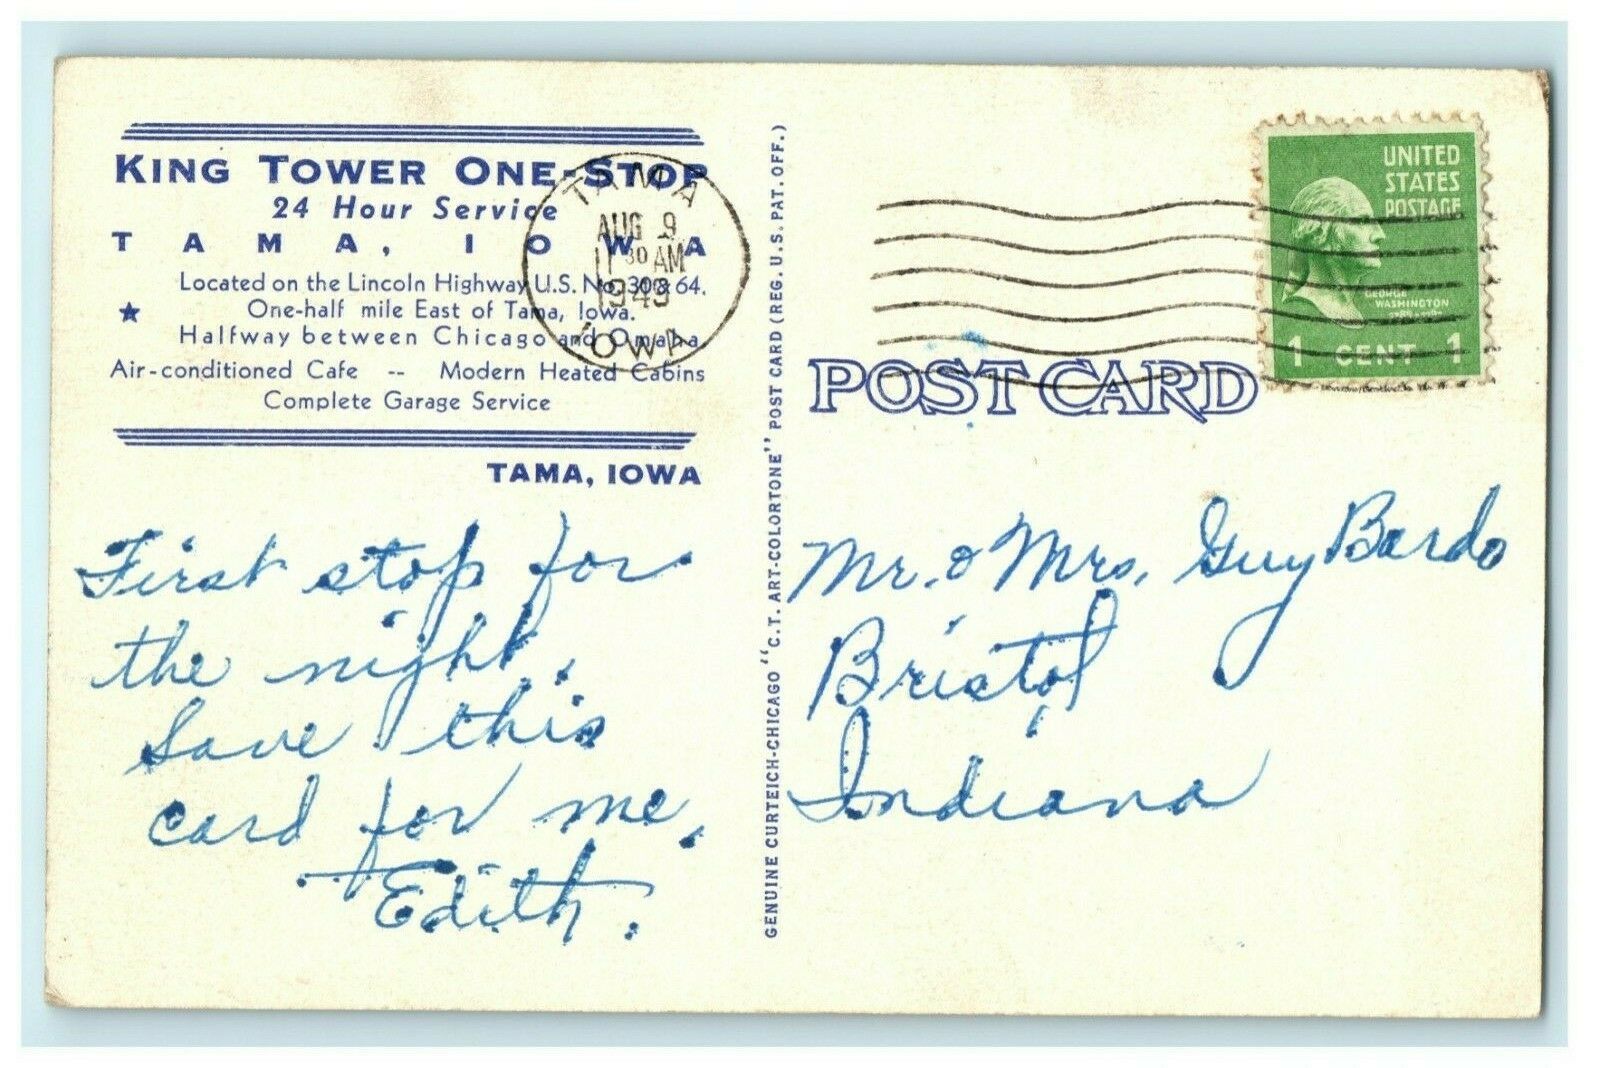 KING TOWER ONE-STOP
24 Hour Service
TAMA, IOWA
Located on the Lincoln Highway U.S. No. 30 & 64.
One-half mile East of Tama, Iowa.
★ Halfway between Chicago and Omaha
Air-conditioned Cafe -- Modern Heated Cabins
Complete Garage Service
TAMA, IOWA
TAMA
AUG 9
11 30 AM
1949
IOWA
First stop for
the night.
Save this
card for me.
Edith.
GENUINE CURTEICH-CHICAGO "C.T. ART-COLORTONE" POST CARD (REG. U.S. PAT. OFF.)
UNITED
STATES
POSTAGE
GEORGE
WASHINGTON
1 CENT 1
POST CARD
Mr. & Mrs. Guy Bardo
Bristol
Indiana